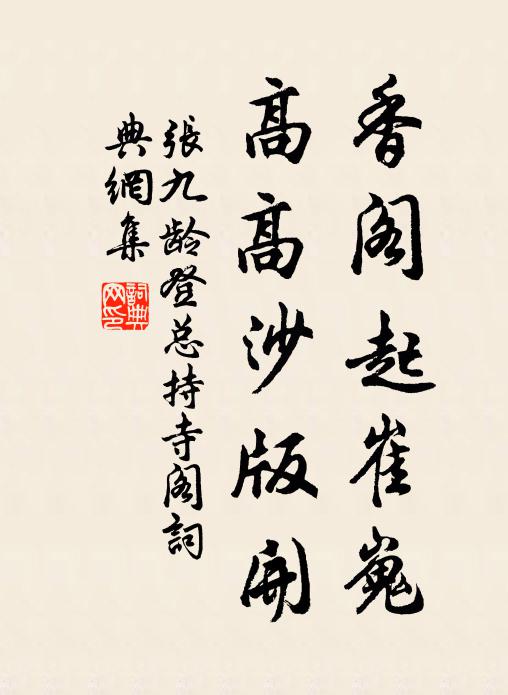 香阁起崔嵬
高高沙版開
張九龄登总持寺阁詞
典網集
詞典网印